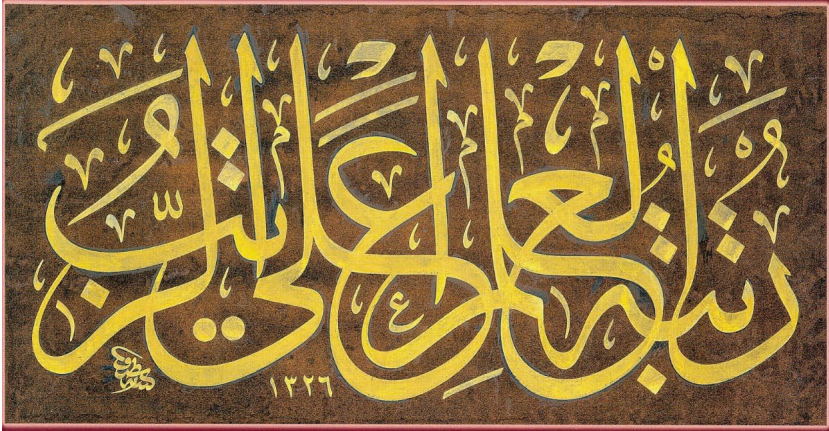 رتبة العلم اعلى الرتب
١٣٢٦